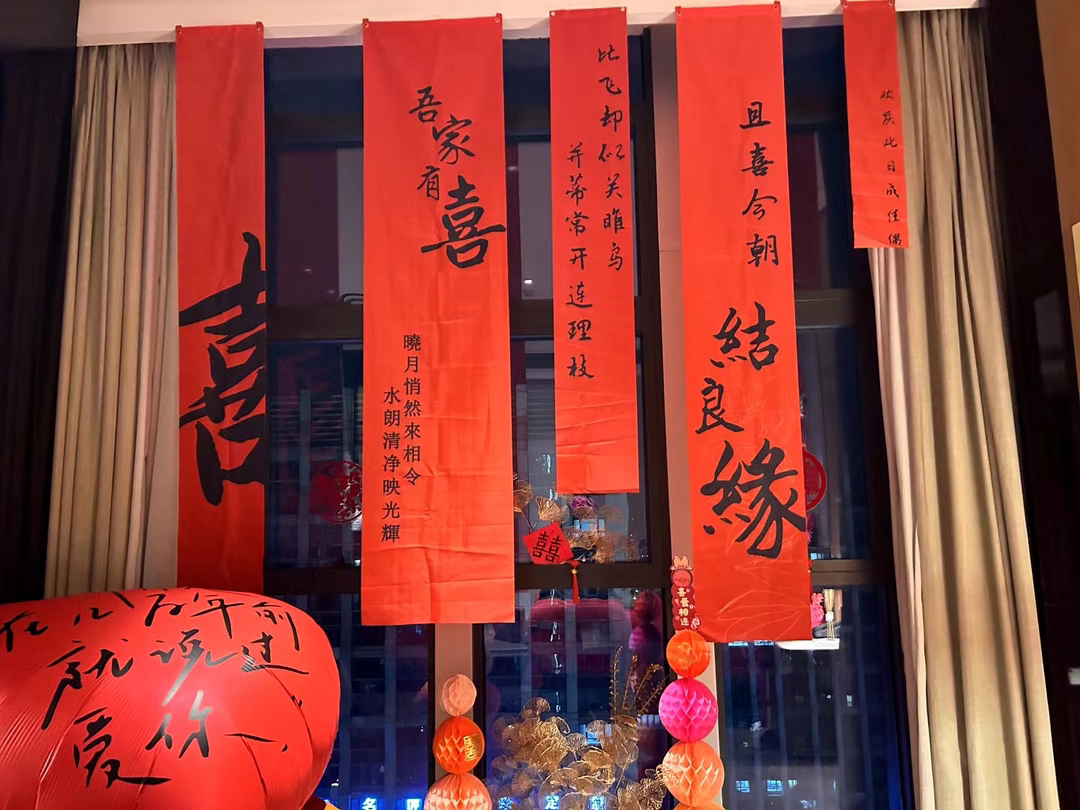 喜
吾家有喜
曉月悄然來相令
水朗清净映光輝
比飞却似关雎鸟
并蒂常开连理枝
且喜今朝
結良緣
欣庆此日成佳偶
囍
在八百年前
就说过
爱你